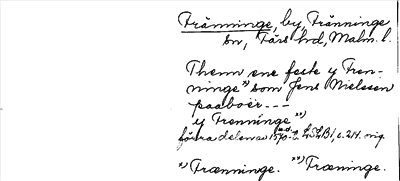 Tränninge, by, Tränninge
sn, Färs hd, Malm. l.
Thenn ene feste y Tren-
ninge x) som Jens Nielssen
paaboer ---
y Trenninge xx)
förra delen av 1570-t. LSB, s. 214. orig.
x) Trænninge. xx) Træninge.